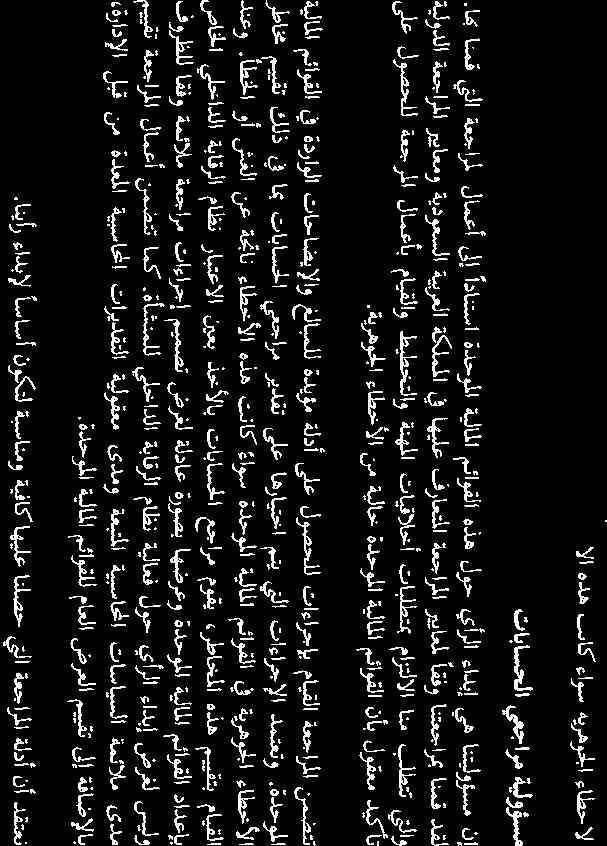 لاحطاء الجوهريه سواء كانت هذه الا
مسؤولية مراجعي الحسابات
إن مسؤوليتنا هي إبداء الرأي حول هذه القوائم المالية الموحدة استناداً إلى أعمال المراجعة التي قمنا بها.
لقد قمنا بمراجعتنا وفقاً لمعايير المراجعة المتعارف عليها في المملكة العربية السعودية ومعايير المراجعة الدولية
والتي تتطلب منا الالتزام بمتطلبات أخلاقيات المهنة والتخطيط والقيام بأعمال المراجعة للحصول على
تأكيد معقول بأن القوائم المالية الموحدة خالية من الأخطاء الجوهرية.
تتضمن المراجعة القيام بإجراءات للحصول على أدلة مؤيدة للمبالغ والإيضاحات الواردة في القوائم المالية
الموحدة. وتعتمد الإجراءات التي يتم اختيارها على تقدير مراجعي الحسابات بما في ذلك تقييم مخاطر
الأخطاء الجوهرية في القوائم المالية الموحدة سواءً كانت هذه الأخطاء ناتجة عن الغش أو الخطأ. وعند
القيام بتقييم هذه المخاطر، يقوم مراجع الحسابات بالأخذ بعين الاعتبار نظام الرقابة الداخلي الخاص
بإعداد القوائم المالية الموحدة وعرضها بصورة عادلة لغرض تصميم إجراءات مراجعة ملائمة وفقا للظروف
وليس لغرض إبداء الرأي حول فعالية نظام الرقابة الداخلي للمنشأة. كما تتضمن أعمال المراجعة تقييم
مدى ملائمة السياسات المحاسبية المتبعة ومدى معقولية التقديرات المحاسبية المعدة من قبل الإدارة،
بالإضافة إلى تقييم العرض العام للقوائم المالية الموحدة.
نعتقد أن أدلة المراجعة التي حصلنا عليها كافية ومناسبة لتكون أساساً لإبداء رأينا.